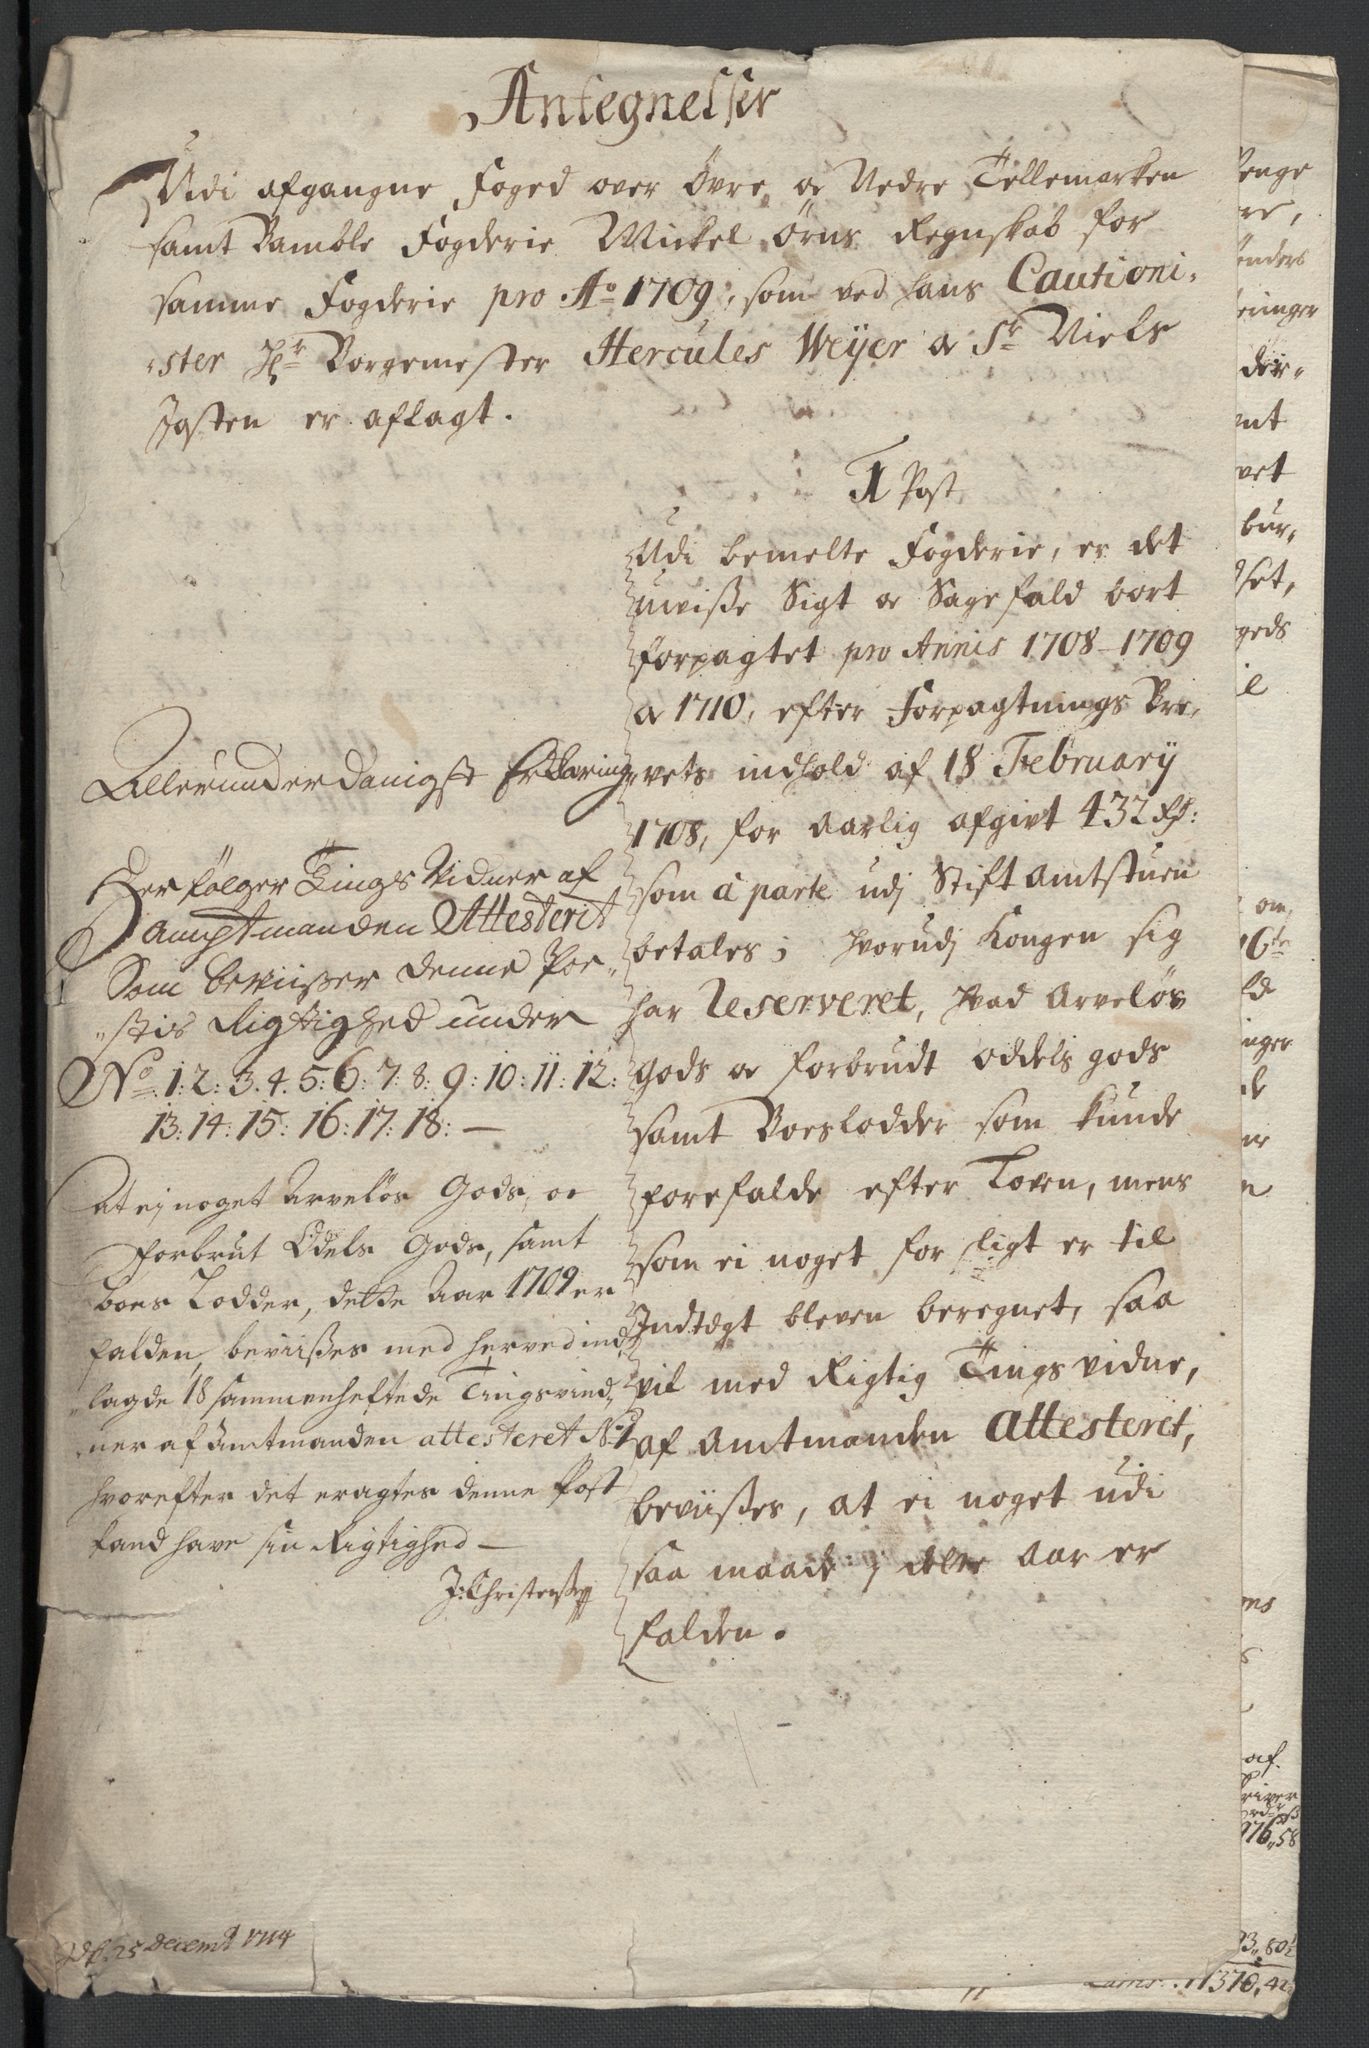 Antegnelsser
Udi afgangne Foged over Øvre og Nedre Tellemarken
samt Bamble Fogderie Mickel Örns Regnskab for
samme Fogderie pro Ao 1709, som ved hans Cautioni-
ster Hr Borgemester Hercules Weÿer og Sr Niels
Josten er aflagt.
1 Post
Udi bemelte Fogderie, er det
uvisse Sigt og Sagefald bort
forpagtet pro Annis 1708-1709
og 1710, efter Forpagtnings Bre-
vets indhold af 18 February
1708, for Aarlig afgivt 432 Rd:
som a parte udj Stiftamtstuen
betales; hvorudj Kongen sig
har Reserveret, hvad Arveløs
gods og forbrudt oddels gods
samt Boeslodder som kunde
forefalde efter Loven, mens
som ei noget for sligt er til
Indtægt bleven beregnet, saa
vil med Rigtig Tingsvidne,
af Amtmanden attesteret,
beviisses, at ei noget udi
saa maade j dette Aar er
falden.
Allerunderdanigste Erklaring
Her følger Tings Vidner af
Amptmanden Attesterit
Som beviisser denne Poe-
stis Rigtighed under
No 1: 2: 3. 4. 5: 6: 7: 8: 9: 10: 11: 12:
13: 14: 15: 16: 17: 18: —
At ej noget Arveløs Gods, og
forbrut Odels Gods, samt
Boes Lodder, dette Aar 1709 er
falden, beviisses med herved ind-
lagde 18 sammenheftede Tingsvid-
ner af Amtmanden attesteret No 1
hvorefter det eragtes denne Post
kand have sin Rigtighed —
J: Christensen
25 Decemb 1714